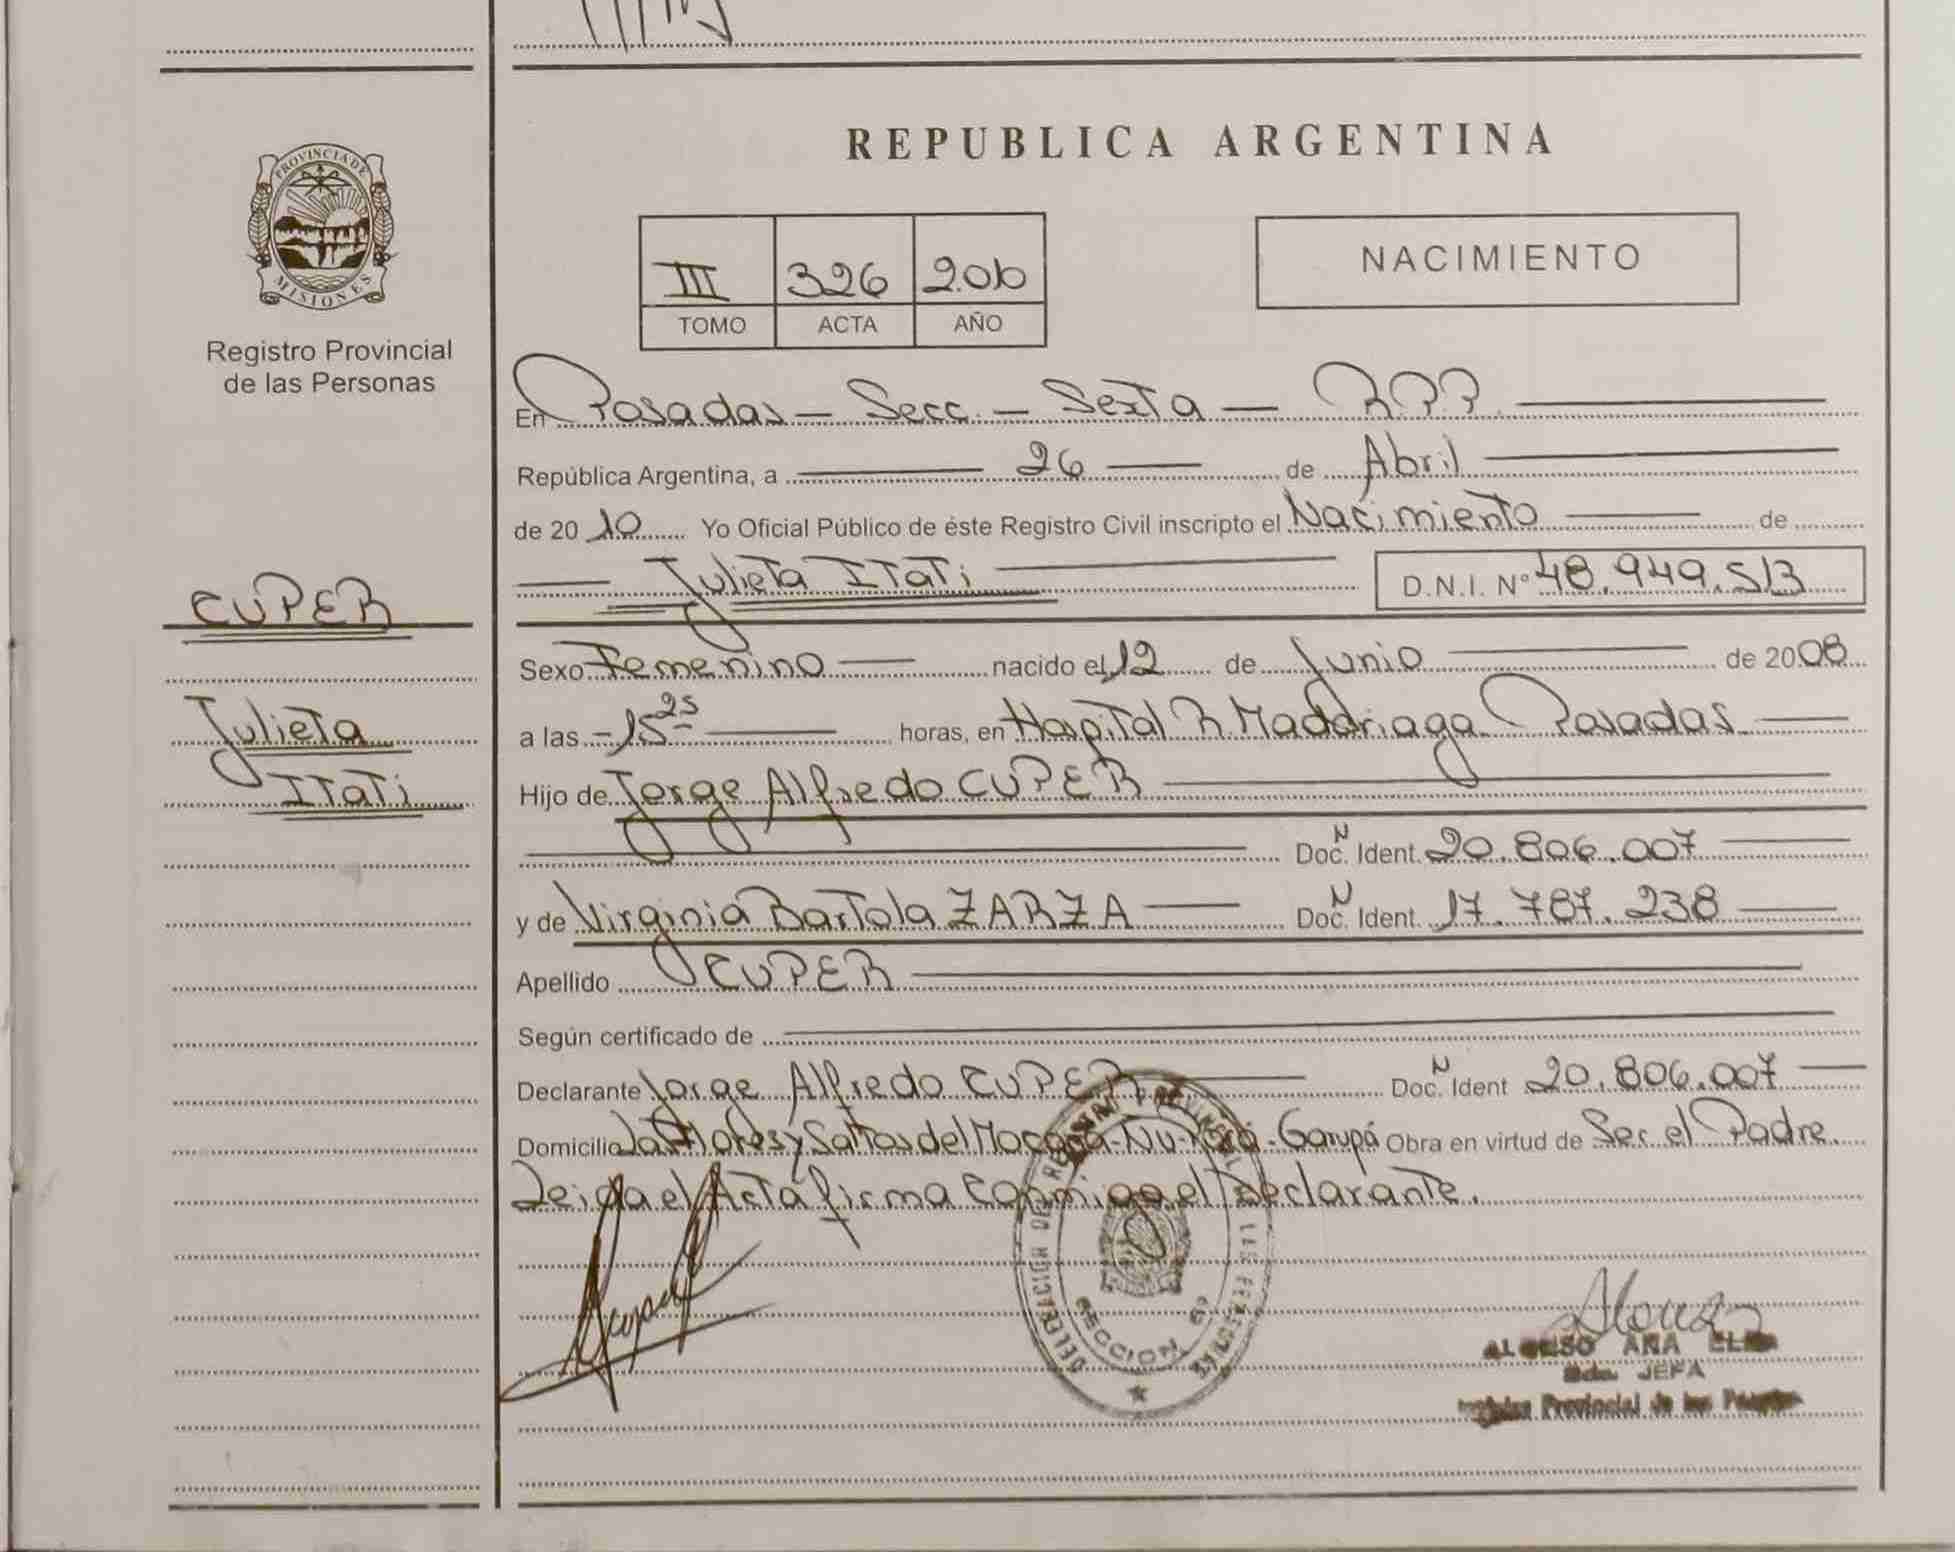 PROVINCIA DE
MISIONES
Registro Provincial
de las Personas
CUPER
Julieta
Itati
REPUBLICA ARGENTINA
III 326 2010
TOMO ACTA AÑO
NACIMIENTO
En Posadas - Secc. - Sexta - R.P.P.
República Argentina, a 26 de Abril
de 2010 Yo Oficial Público de éste Registro Civil inscripto el Nacimiento de
Julieta Itati D.N.I. Nº 48.949.513
Sexo Femenino nacido el 12 de Junio de 2008
a las -15 25 horas, en Hospital R. Maddriaga Posadas
Hijo de Jorge Alfredo CUPER
Doc. N Ident. 20.806.007
y de Virginia Bartola ZARZA Doc. N Ident. 17.787.238
Apellido CUPER
Según certificado de
Declarante Jorge Alfredo CUPER Doc. N Ident 20.806.007
Domicilio Las Flores y Saltos del Mocona - Ñu - Porá - Garupá Obra en virtud de Ser el Padre.
Leida el Acta firma Conmigo el Declarante.
SECCION 6ª
ALONSO ANA ELSA
JEFA
Provincial de las Personas